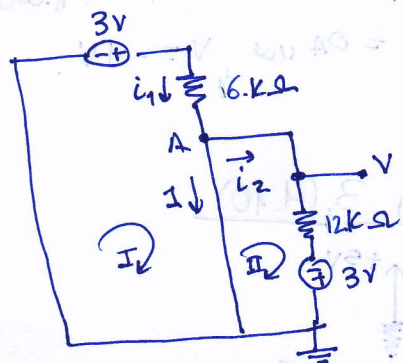 3V
-+
i₁↓ 6.KΩ
A
→ i₂
V
I ↓
12KΩ
I
II
3V